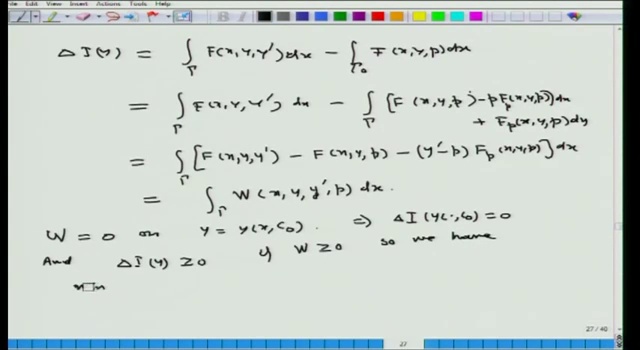 File Edit View Insert Actions Tools Help
Δ I(y) = ∫_Γ F(x,y,y')dx − ∫_Γ₀ F(x,y,p)dx
= ∫_Γ F(x,y,y') dx − ∫_Γ [F(x,y,p) − p F_p(x,y,p)]dx
+ F_p(x,y,p)dy
= ∫_Γ [F(x,y,y') − F(x,y,p) − (y'−p) F_p(x,y,p)]dx
= ∫_Γ W(x,y,y',p) dx.
W = 0 on y = y(x,c₀). ⇒ ΔI(y(·,c₀) = 0
And ΔI(y) ≥ 0 if W ≥ 0 so we have
27 / 40
27